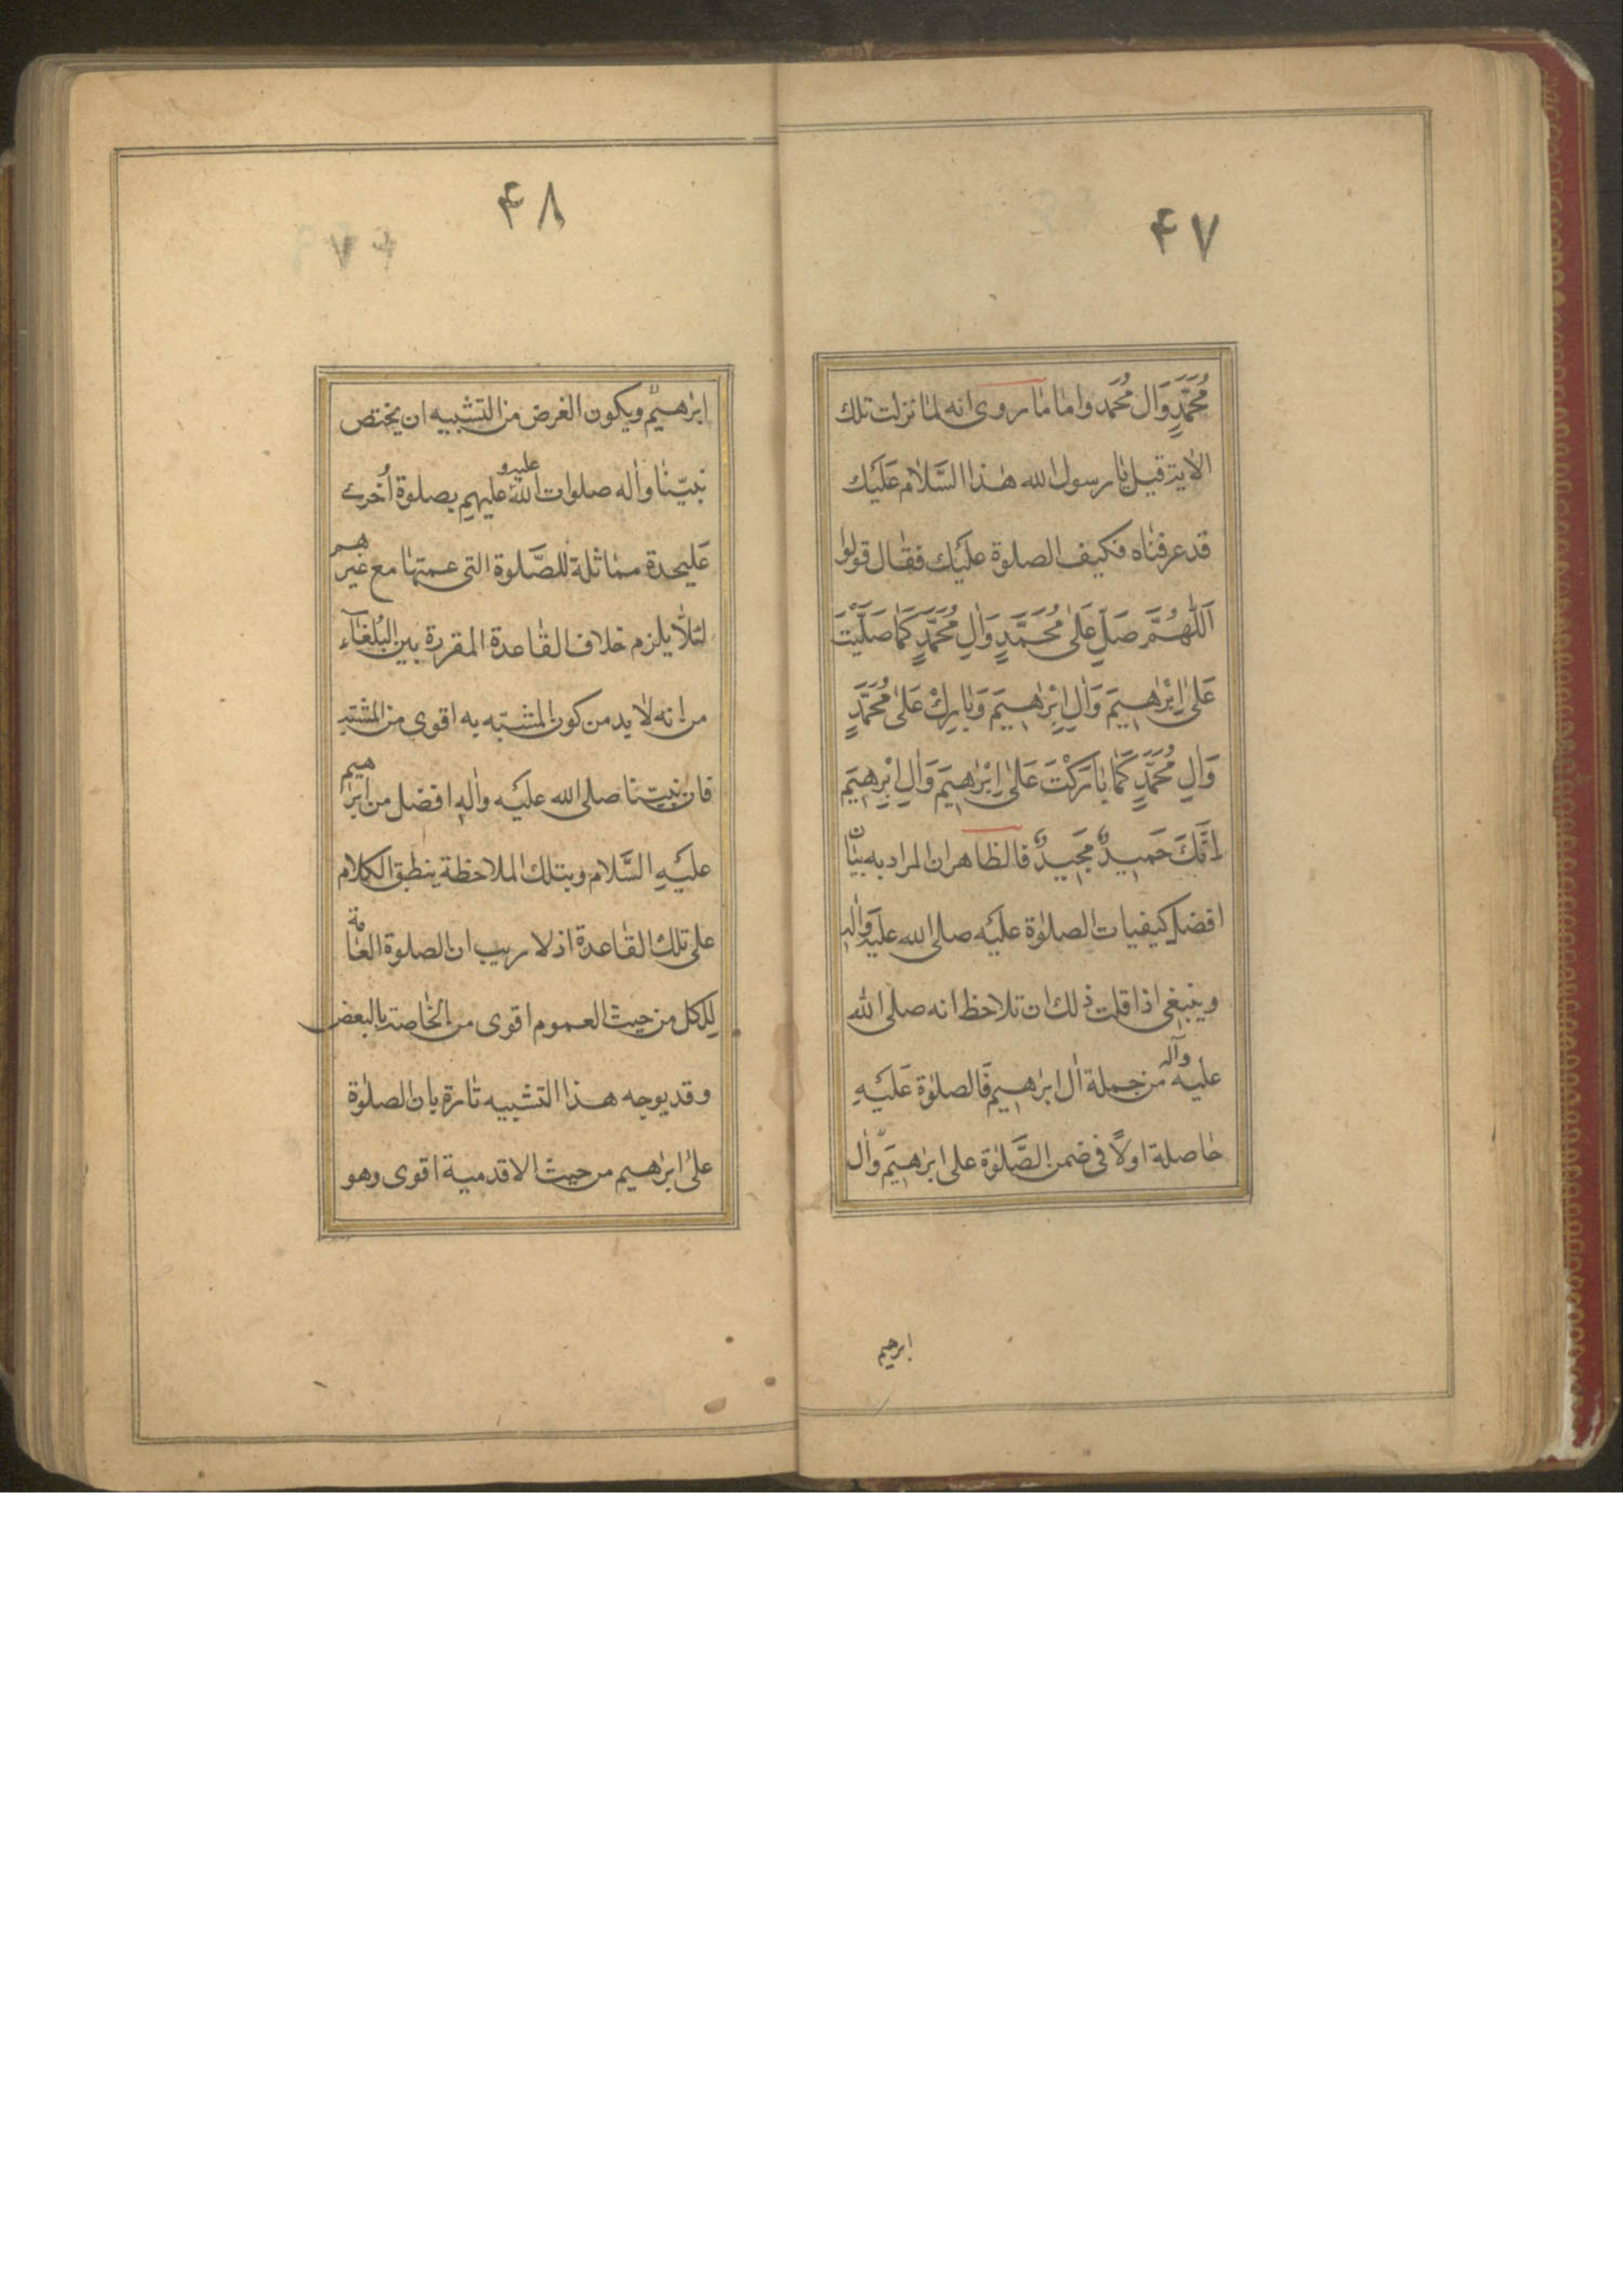 ۴۷
مُحَمَّدٍ وَاٰل مُحَمد واما مٰا روى انه لمٰا نزلت تلك
الاٰية قيل يٰا رسول الله هٰذا السَّلاٰم عَلَيك
قد عرفنٰاه فكيف الصلوة عليك فقٰال قولوا
اَللّٰهُمَّ صَلِّ عَلىٰ مُحَمَّدٍ وَاٰلِ مُحَمَّدٍ كَمٰا صَلَّيْتَ
عَلىٰ اِبْرٰهيمَ وَاٰلِ اِبْرٰهيمَ وَبٰارِكْ عَلىٰ مُحَمَّدٍ
وَاٰلِ مُحَمَّدٍ كَمٰا بٰارَكْتَ عَلىٰ اِبْرٰهيمَ وَاٰلِ اِبْرٰهيمَ
اِنَّكَ حَميدٌ مَجيدٌ فالظاهر ان المراد به بيٰان
افضل كيفيات الصلوٰة عليه صلى الله عليه وَاٰله
وينبغى اذا قلت ذلك ان تلاحظ انه صلى الله
عليه وآله من جملة اٰل ابرٰهيم فَالصلوٰة عَليهِ
حٰاصلة اولاً فى ضمن الصَّلوٰة على ابرٰهيم وَاٰل
ابرهيم
۴۸
ابرٰهيم ويكون الغرض من التشبيه ان يختص
نبيّنٰا واٰله صلوات الله عليه و عليهم بصلوة اُخرى
عَليحدة ممٰاثلة للصَّلوة التى عمتهٰا مع غيرهم
لئلاّ يلزم خلاف القٰاعدة المقررة بين البُلغٰآء
من انه لاٰ بد من كون المشبّه به اقوى من المشبّه
فان نبيّنٰا صلى الله عليه واٰلهِ افضل من ابرٰهيم
عليهِ السَّلام وبتلك الملاحظة ينطبق الكلام
على تلك القٰاعدة اذ لا ريب ان الصلوة العٰامة
لِلكل من حيث العموم اقوى من الخٰاصة بالبعض
وقد يوجه هذا التشبيه تٰارة بان الصلوٰة
علىٰ ابرٰهيم من حيث الاقدمية اقوى وهو